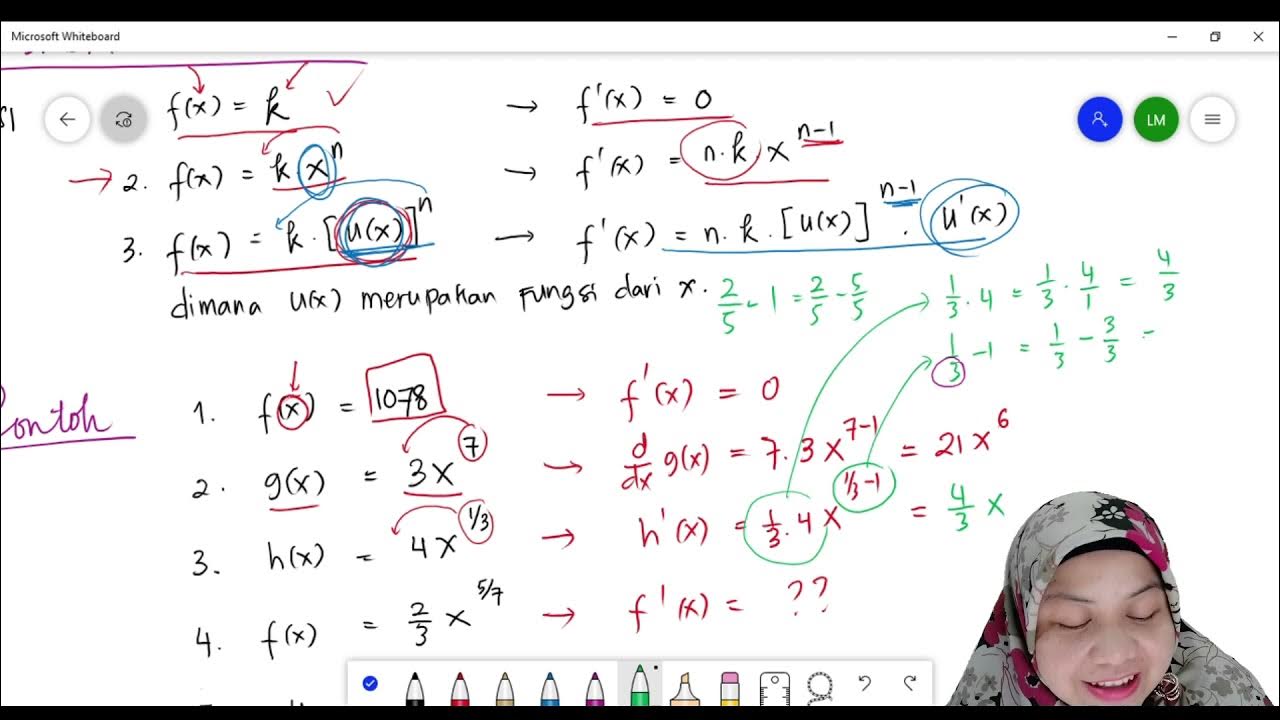 Microsoft Whiteboard
f(x) = k → f'(x) = 0
LM
2. f(x) = k . x^n → f'(x) = n . k x^(n-1)
3. f(x) = k . [u(x)]^n → f'(x) = n . k . [u(x)]^(n-1) . u'(x)
dimana u(x) merupakan fungsi dari x.
2/5 - 1 = 2/5 - 5/5
1/3 . 4 = 1/3 . 4/1 = 4/3
1/3 - 1 = 1/3 - 3/3 =
Contoh
1. f(x) = 1078 → f'(x) = 0
2. g(x) = 3x^7 → d/dx g(x) = 7 . 3x^(7-1) = 21x^6
3. h(x) = 4x^(1/3) → h'(x) = 1/3 . 4x^(1/3-1) = 4/3 x
4. f(x) = 2/3 x^(5/7) → f'(x) = ??